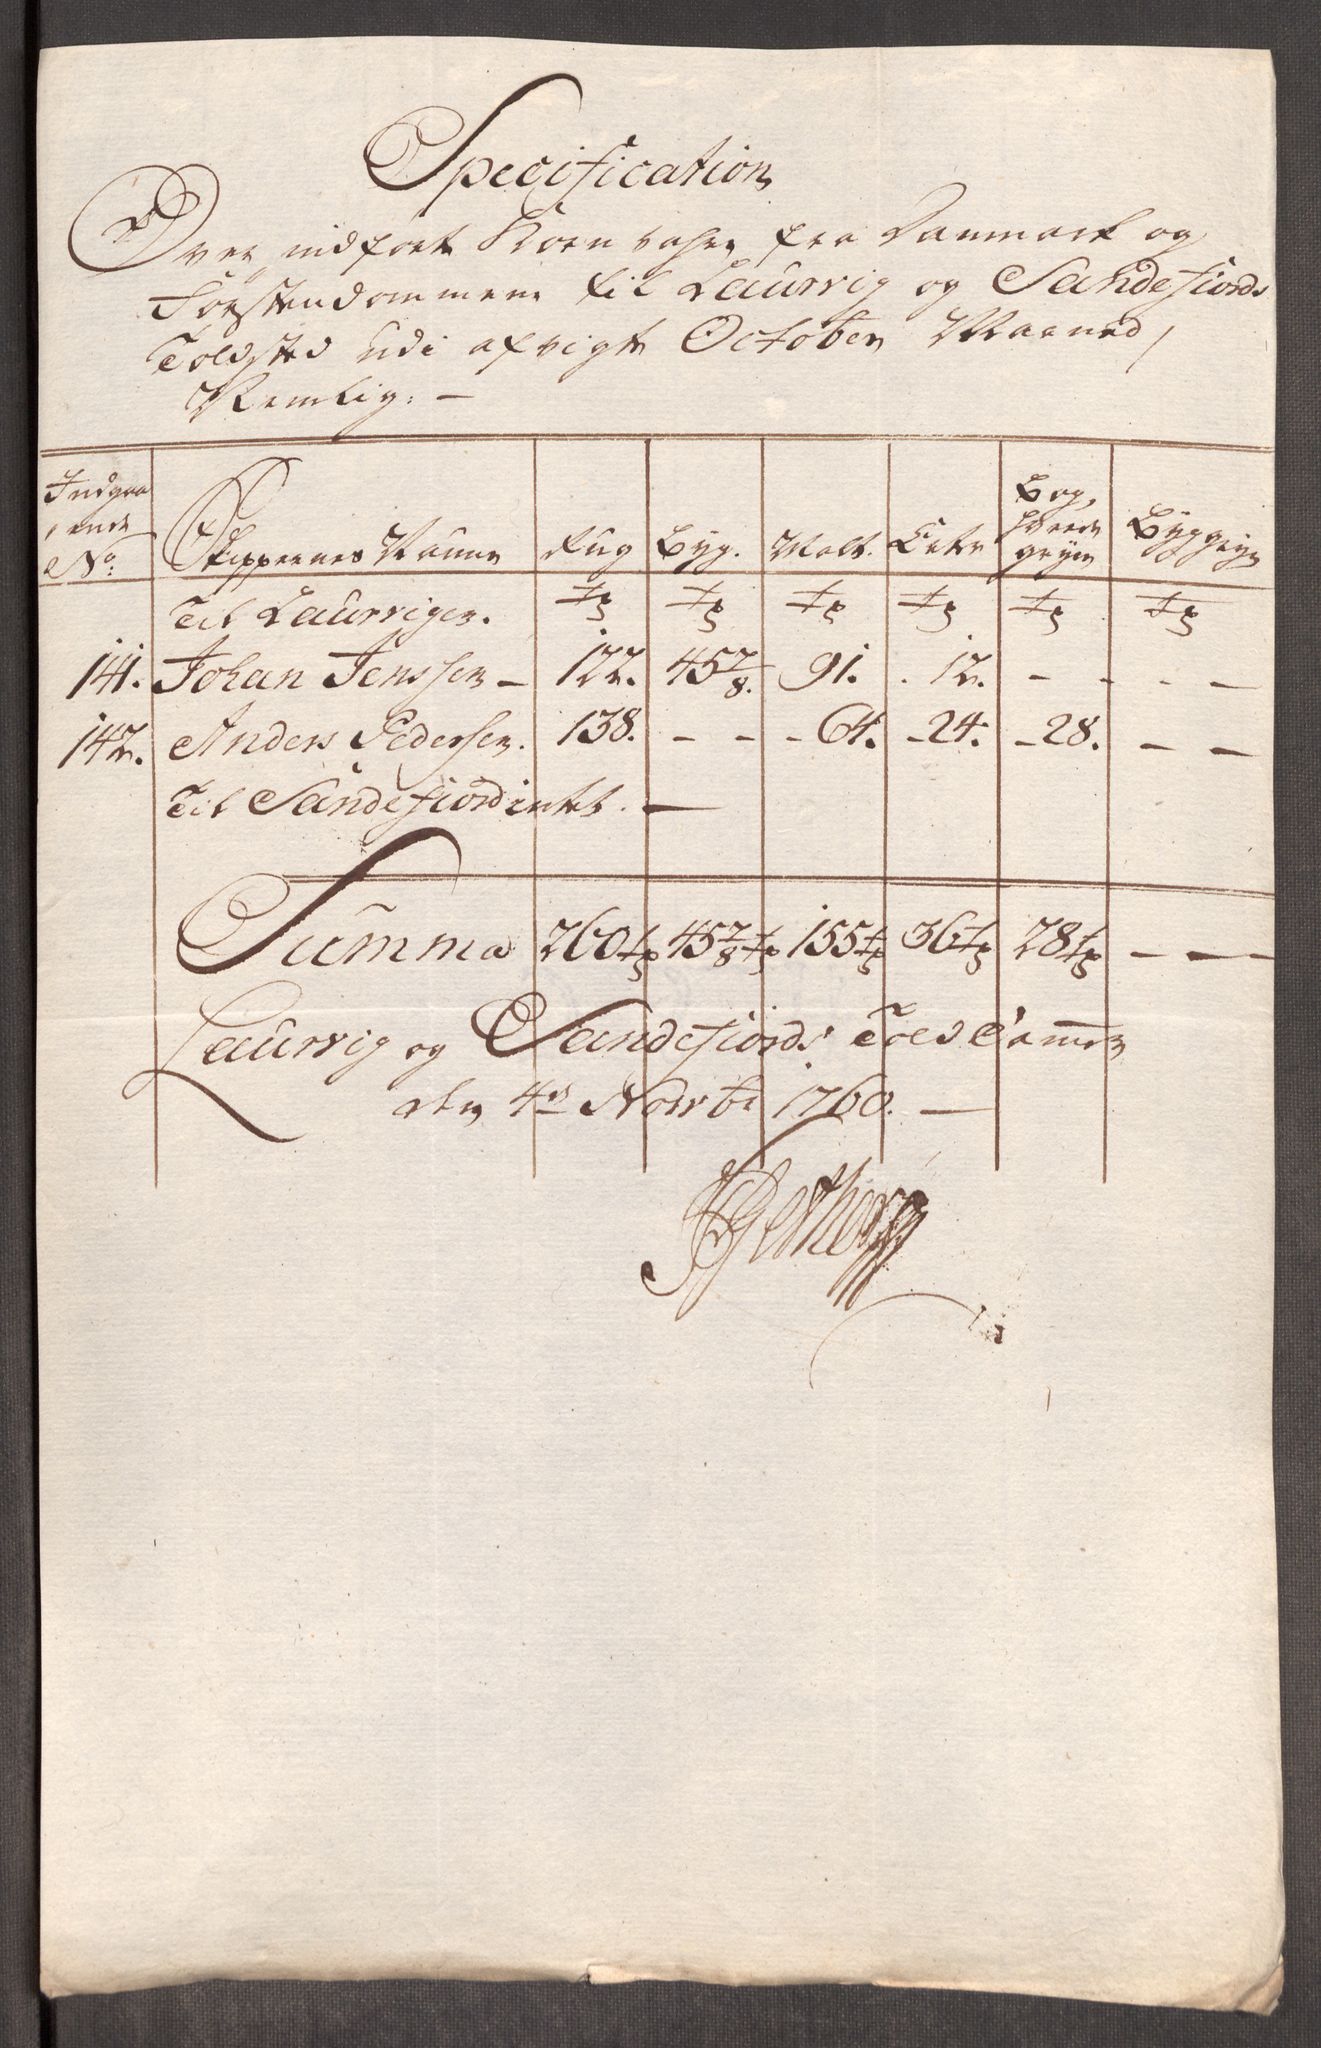 Specification
Over indført Korn vahre fra Danmark og
Førstendømmene til Laurvig og Sandefiords
Toldsted udi afvigte October Maaned,
Nemlig: —
Indgaa
ende
No: Skippernes Nafne Rug Byg. Malt. Erter Bog,
hvede
gryn Byggryn
Til Laurvigen. Tr Tr Tr Tr Tr Tr
141. Johan Jenssen – 122. 45 7/8. 91. . 12. – – – –
142. Anders Pedersen. 138. – – – 64. – 24. – 28. – –
Til Sandefiord intet. —
Summa 260 Tr 45 7/8 Tr 155 Tr 36 Tr 28 Tr – – –
Laurvig og Sandefiords Told Camer
den 4de Novrbr 1760. —